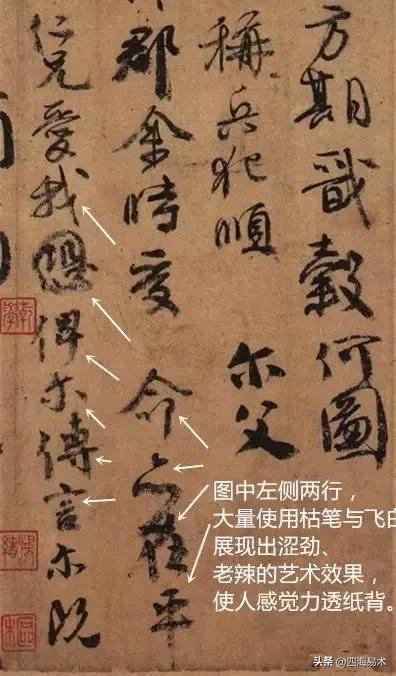 方期戩穀何圖
稱兵犯順 尓父
郡余時受 命亦在平
仁兄愛我俾尓傳言尓既
图中左侧两行，
大量使用枯笔与飞白
展现出涩劲、
老辣的艺术效果，
使人感觉力透纸背。
头条 @四海易术